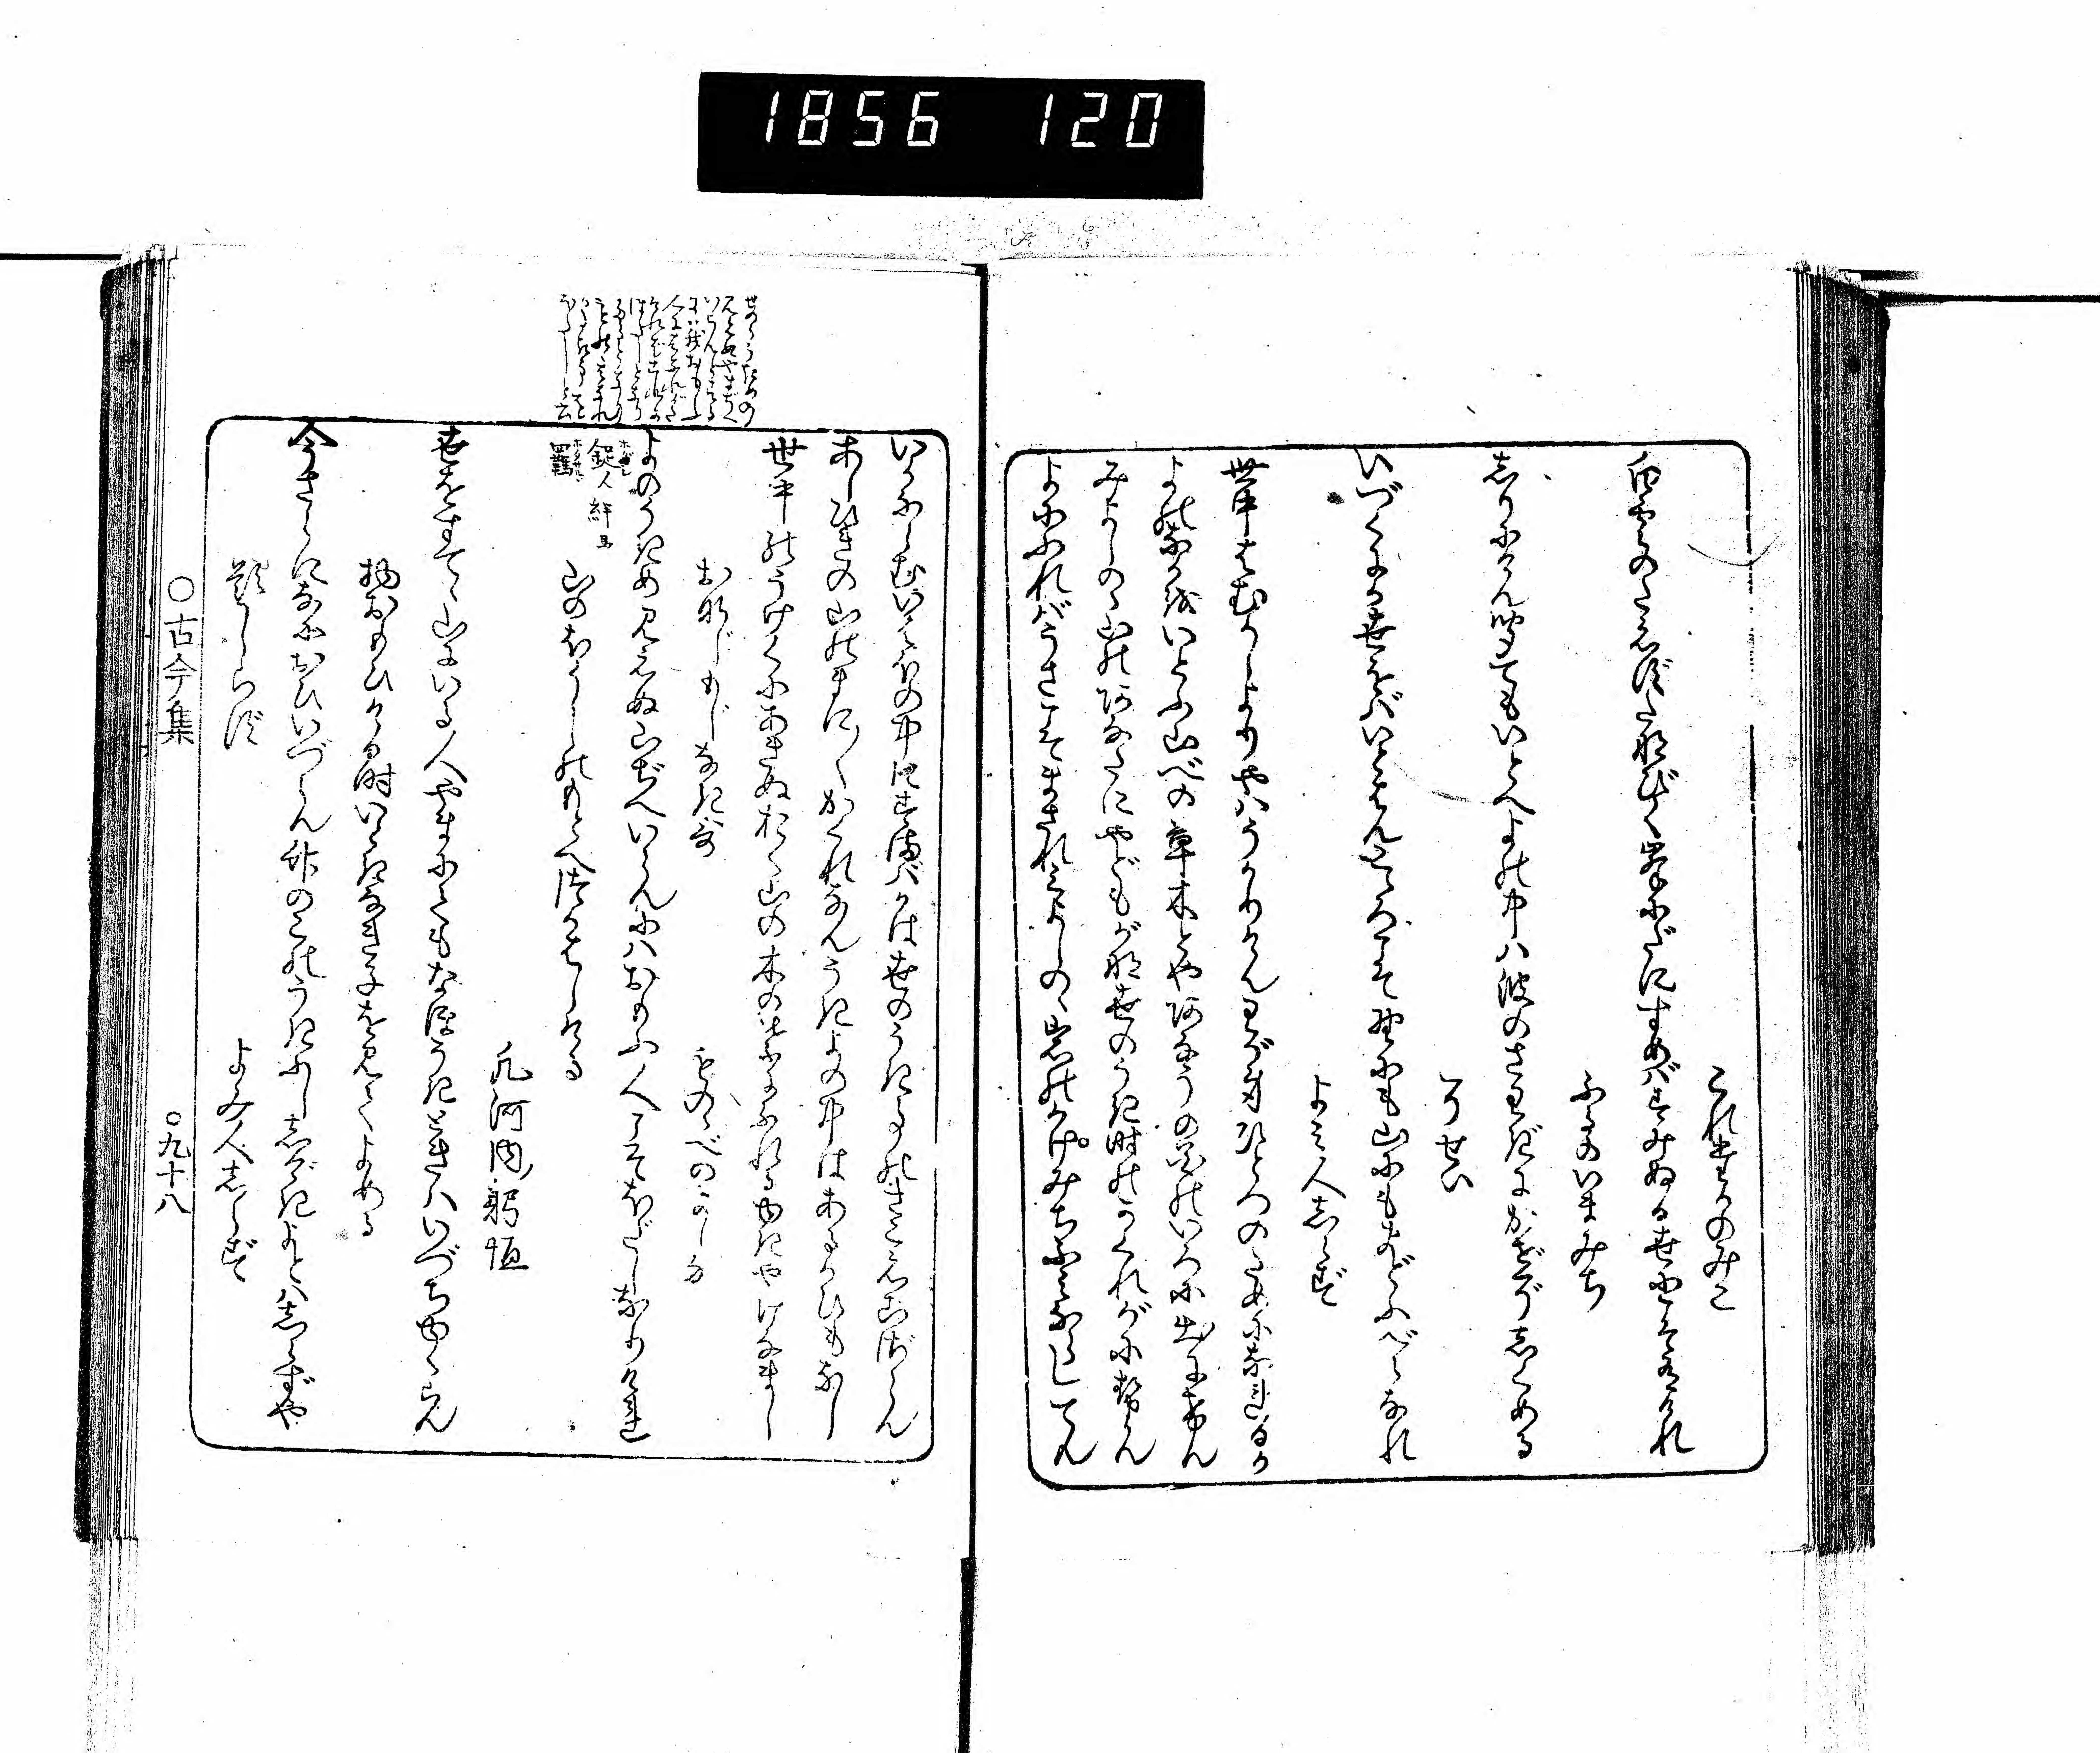 1856 120
これたかのみこ
白雲のたえずたなびく峯にだにすめばすみぬる世にこそ有けれ
ふるのいまみち
しりにけん聞てもいとへよの中ハ波のさわぎにかぜぞしくめる
そせい
いづくにか世をばいとはん心こそ野にも山にもまどふべらなれ
よミ人しらず
世中はむかしよりやハうかりけんわが身ひとつのためになれるか
よの中をいとふ山べの草木とやあなうの花のいろに出にけん
みよしのゝ山のあなたにやどもがな世のうき時のかくれがにせん
よにふればうさこそまされみよしのゝ岩のかけみちふミならしてん
いかならむいはほの中にすまバかは世のうき事のきこえこざらん
あしひきの山のまに〱かくれなんうきよの中はあるかひもなし
世中のうけくにあきぬおく山の木の葉にふれる雪やけなまし
おなじもじなき哥
ものゝべのよしな
よのうきめ見えぬ山ぢへいらんにハおもふ人こそほだしなりけれ
山のほうしのもとへつかはしける
凡河内躬恒
世をすてゝ山にいる人やまにてもなほうきときハいづちゆくらん
物おもひける時いときなき子を見てよめる
今さらになにおひいづらん竹のこのうきふししげきよとハしらずや
題しらず
よみ人しらず
○古今集
○九十八